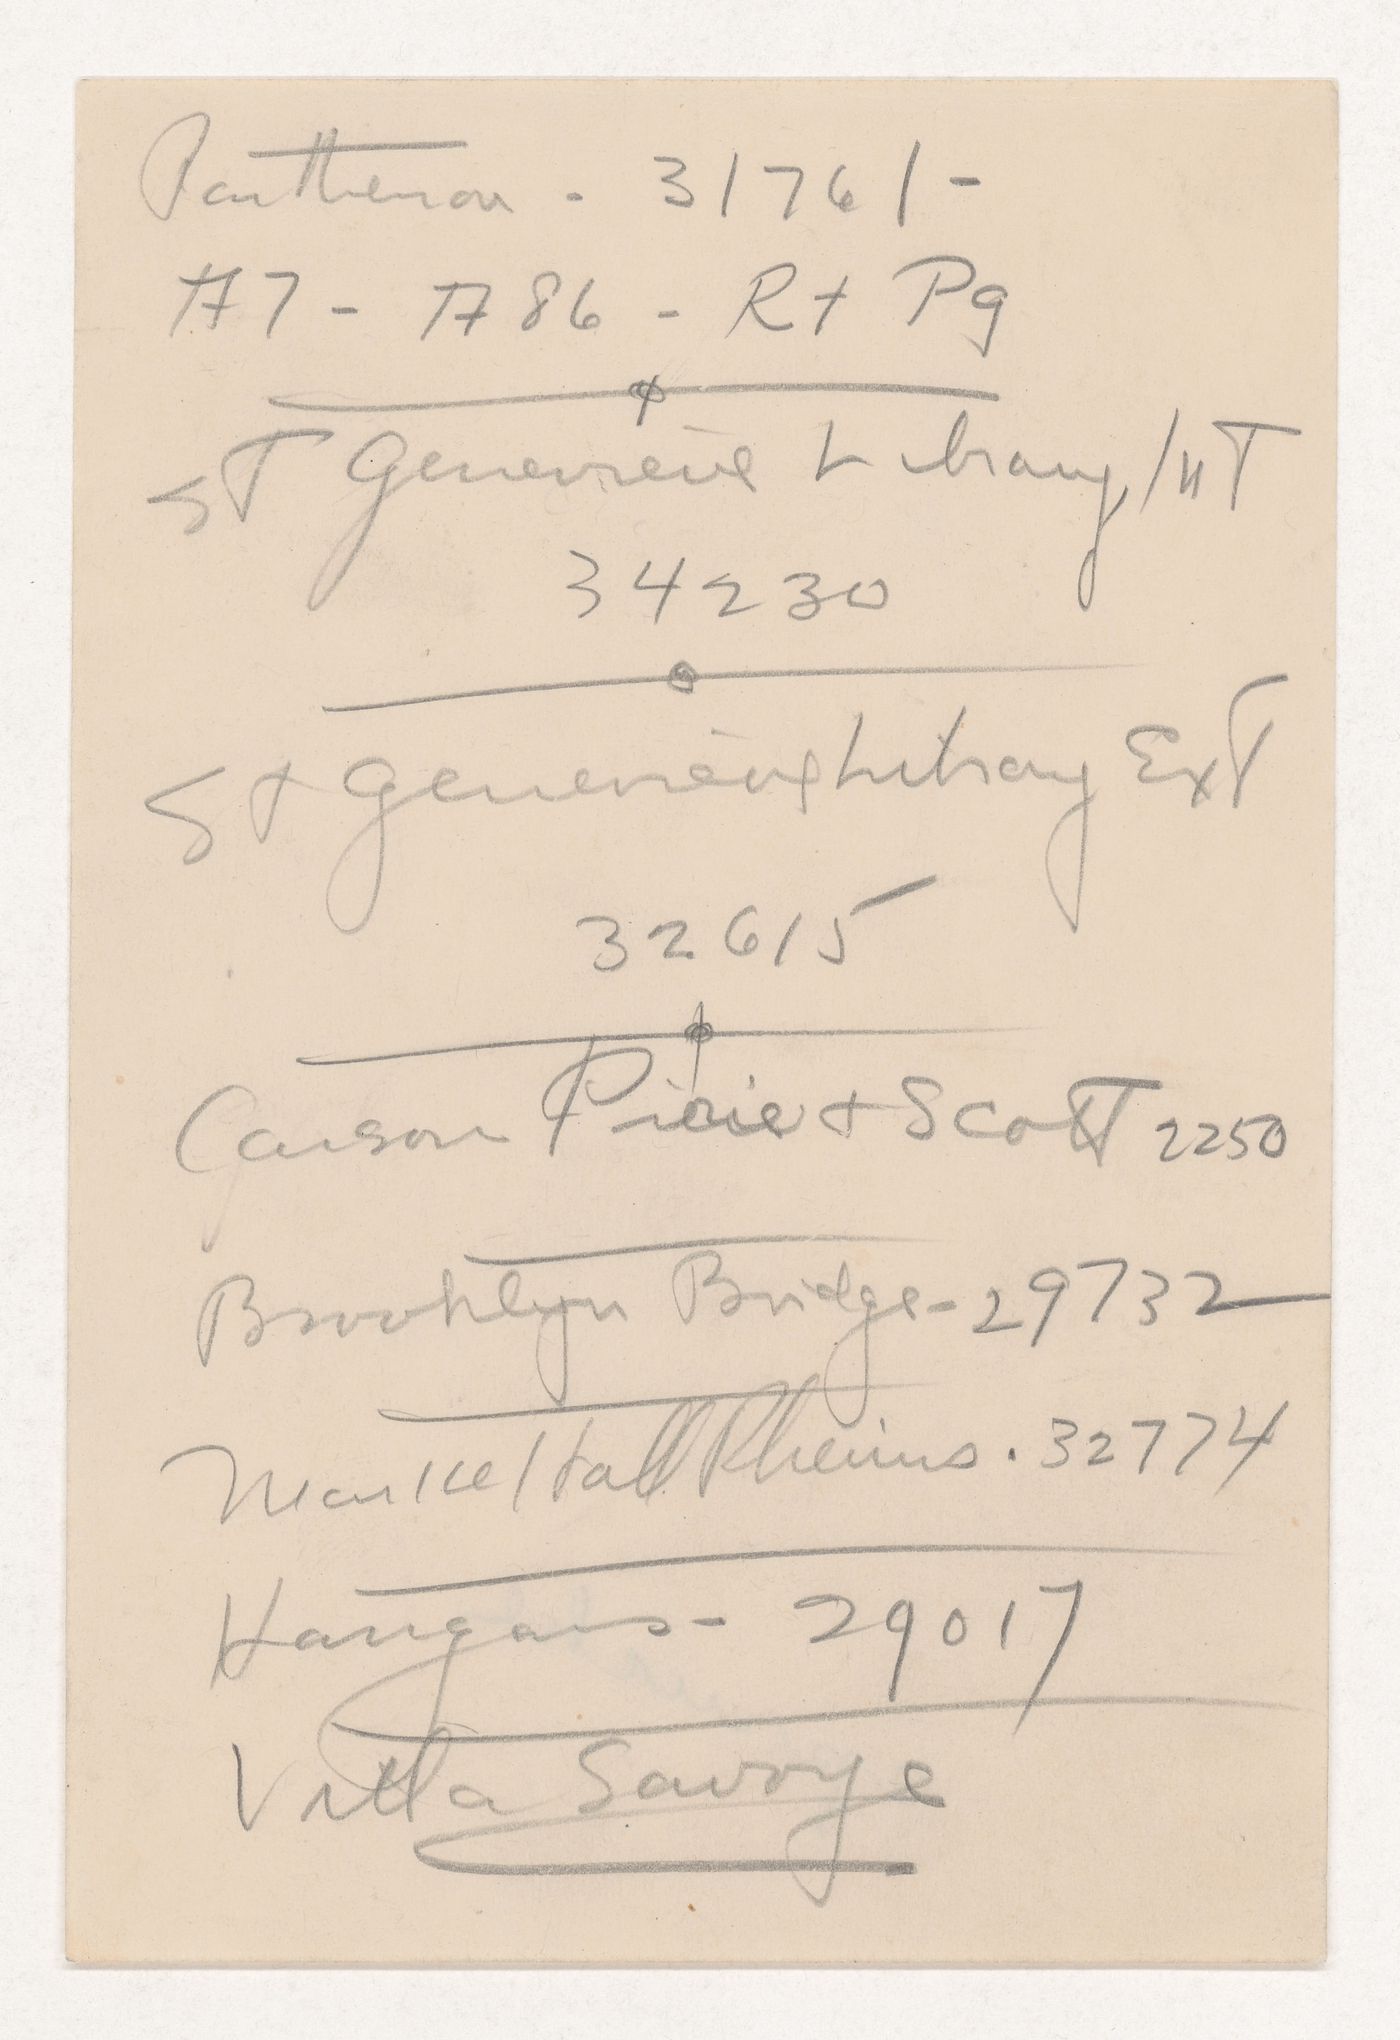 Parthenon - 31761 -
#7 - #86 - Rt Pg
ST Genevieve Library / INT
34230
St Genevieve Library ExT
32615
Carson Pirie + Scott 2250
Brooklyn Bridge - 29732
Market Hall Rheims . 32774
Hangars - 29017
Villa Savoye